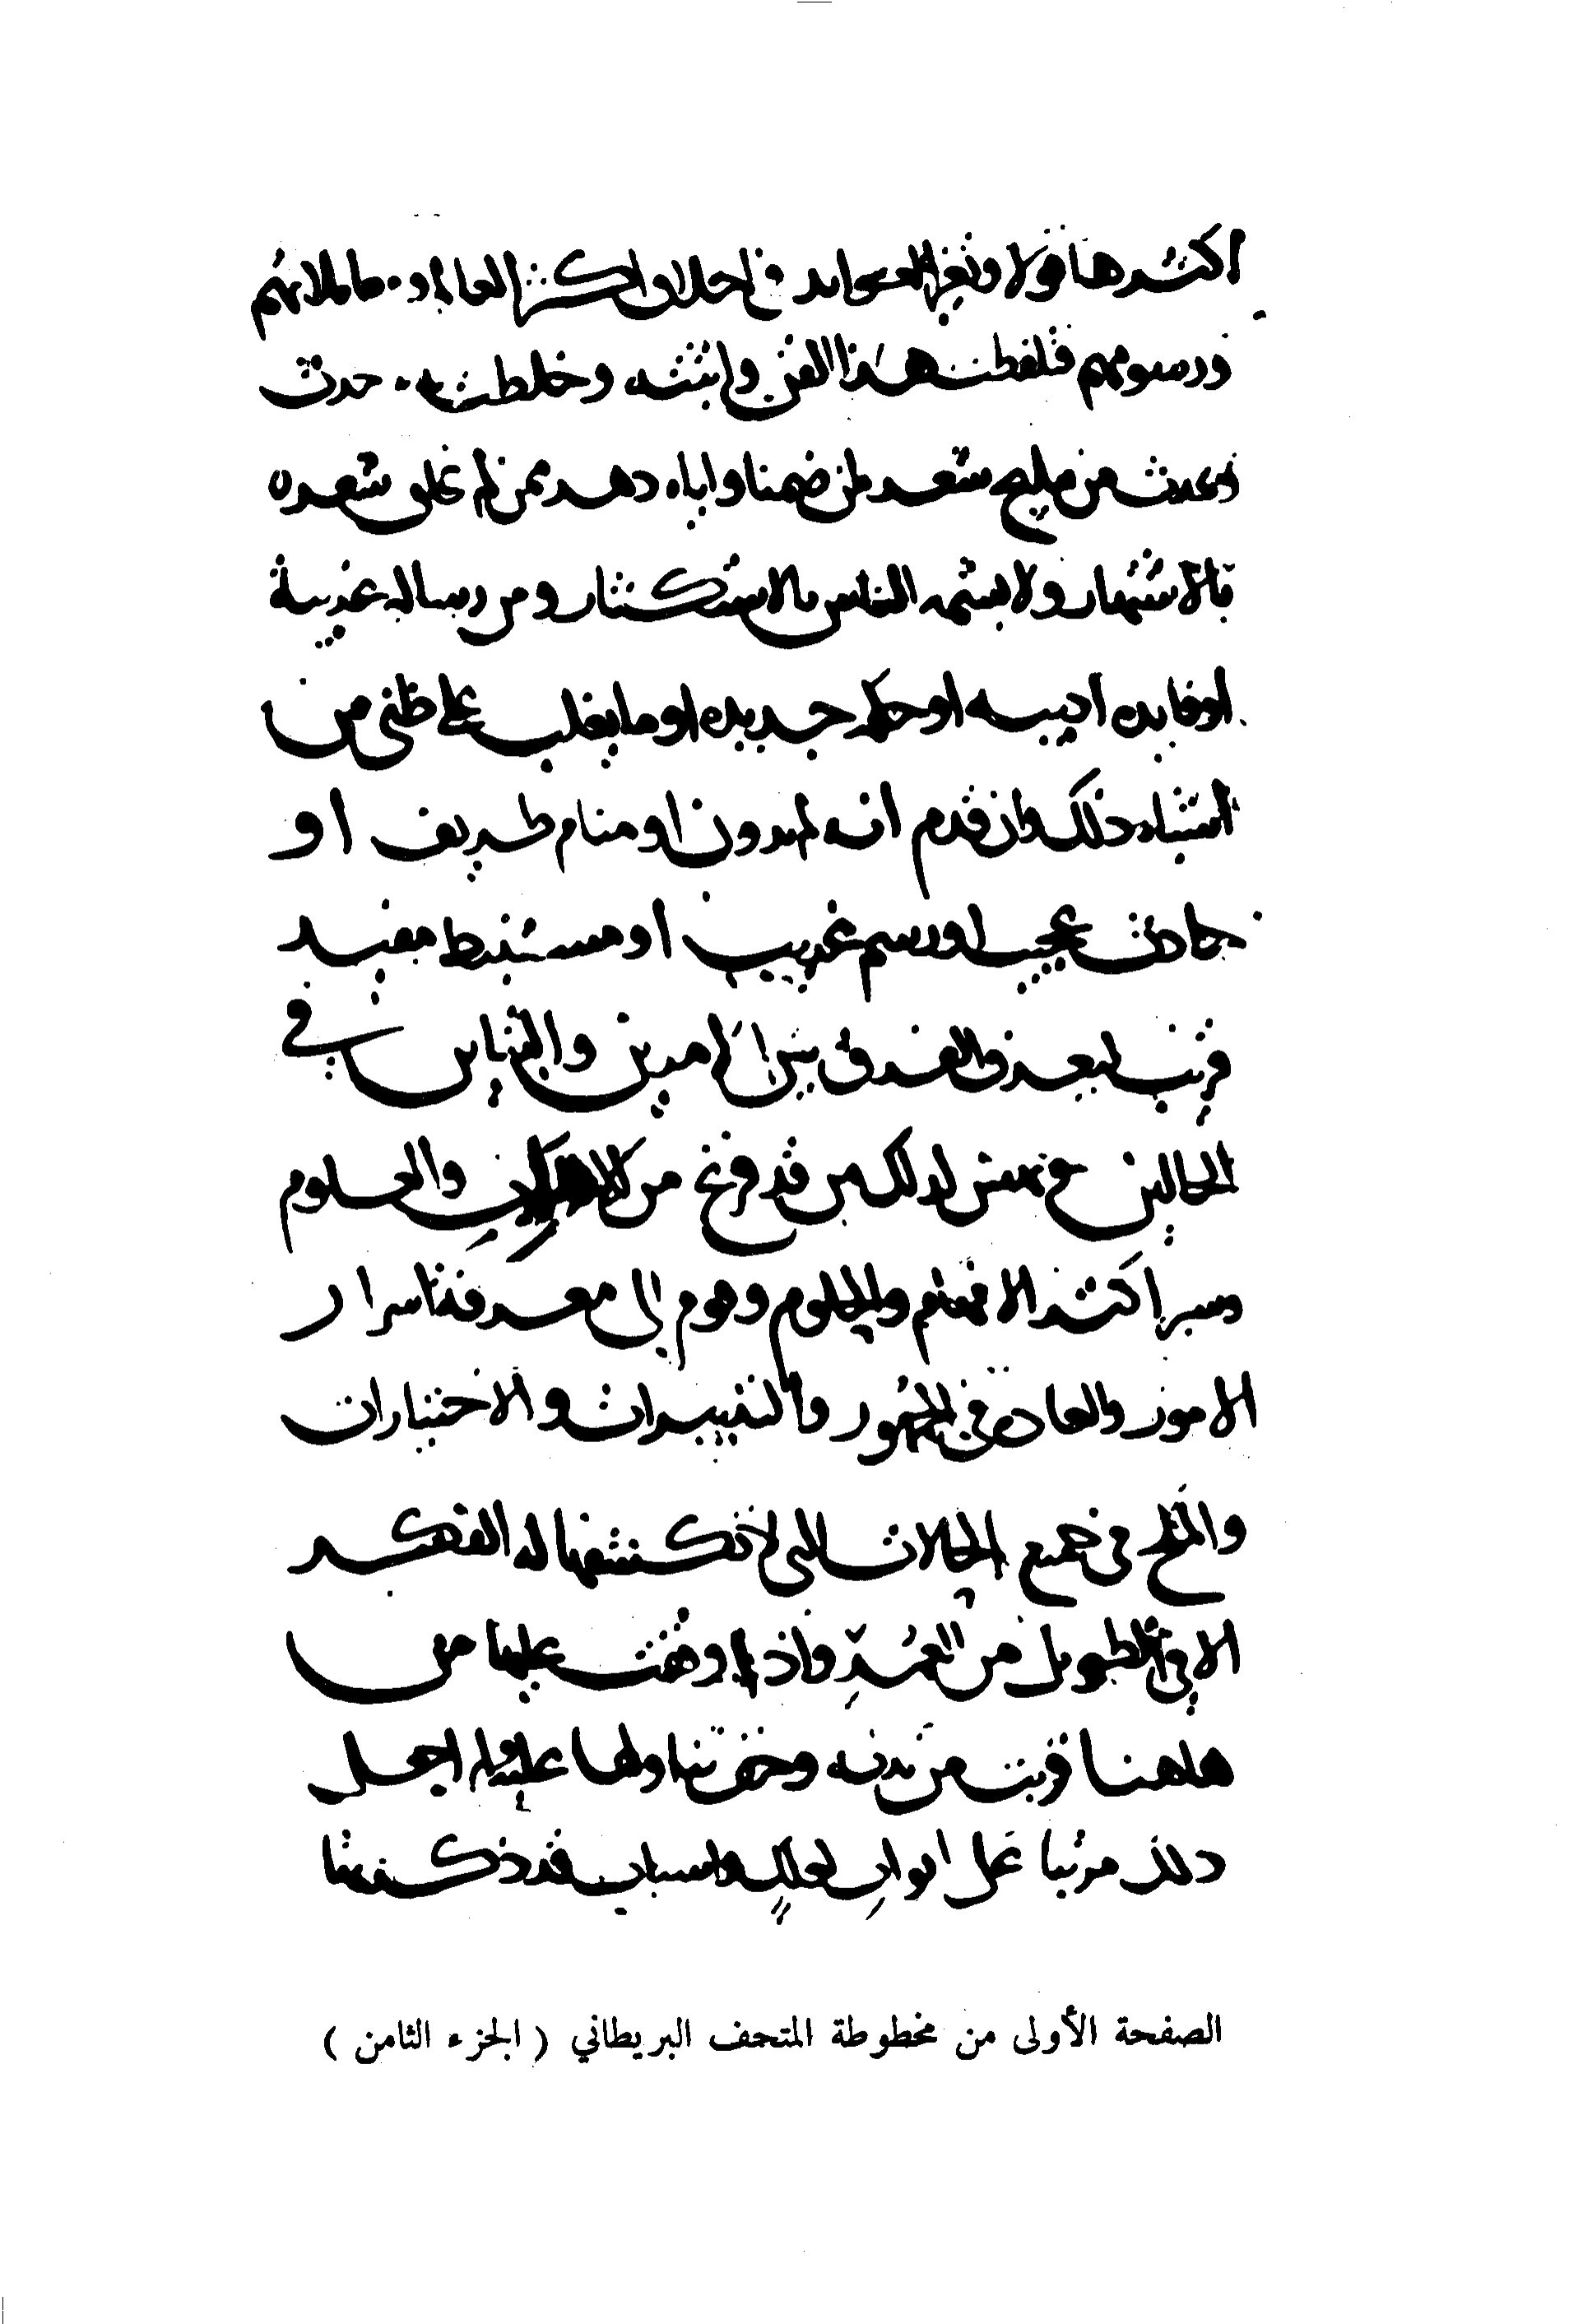 اكثرها قولا وتغير العوايد في اخلاق اكثر
ورسومهم فلقطت هذا الفن واثبته وخلطت
من مليح شعر من ضمنا واياه دهر ممن لم على شعره
بالاشتهار ولا الناس بالاستكثار ومن رساله غريبة
او فايده ادبيه او حكمه جديده او ما يغلب على ظني من
اشباه ذلك وان قدم انه لم يدون او منام طريف او
حادث عجيب او رسم غريب او مستنبط مفيد
قريب لبعد والفرق بين الامرين والتباين في
الحالين لذلك من قد فرغ من والعلوم
وسبر اكثر الاخبار والحلوم وهو م الى معرفة اسرار
الامور والعادة في الجمهور والتغييرات والاختيارات
والملح في جميع الحالات التي لا تكشفها له الفكر
الا في الطويل من العمر واذا وقفت عليها من
هاهنا قربت من بدنه وخف تناولها عليه ولم اجعل
ذلك مرتبا على ابواب لعلل واسباب قد ذكرتها
الصفحة الأولى من مخطوطة المتحف البريطاني ( الجزء الثامن )